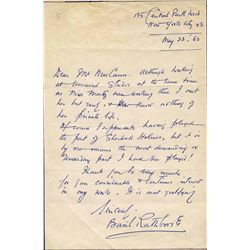 135 Central Park West
New York City 23.
May 23 - 63
Dear Mr MacCann. Although working
at Universal Studios at the same time
as Miss Montez was working there I met
her but rarely & know nothing of
her private life.
Of course I appreciate having played
the part of Sherlock Holmes, but it is
by no means the most demanding or
rewarding part I have been played!
Thank you for being
for your considerable & continued interest
in my work. It is most gratifying
Sincerely,
Basil Rathbone